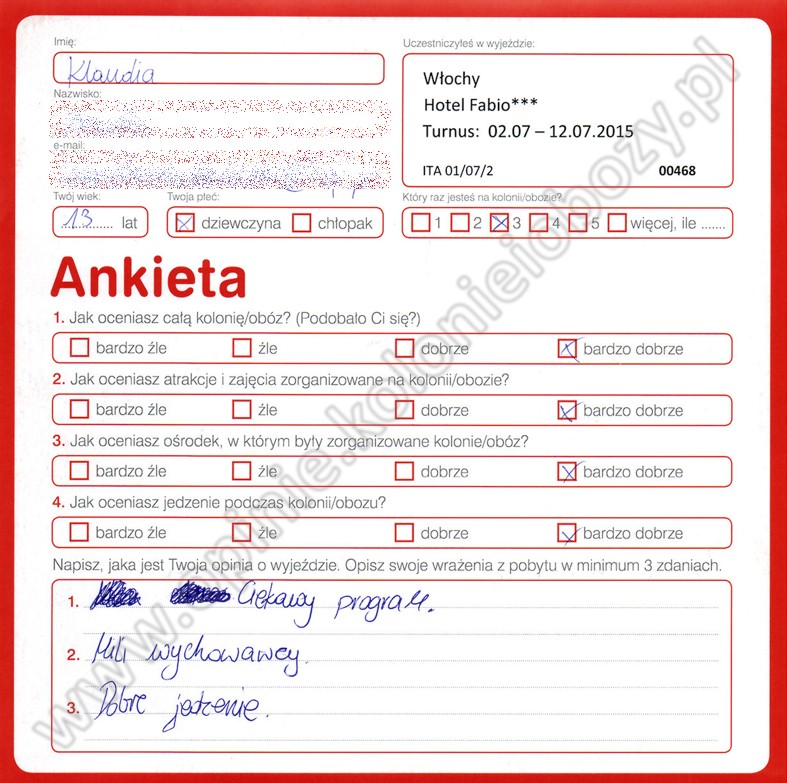 Imię:
Klaudia
Uczestniczyłeś w wyjeździe:
Włochy
Hotel Fabio***
Turnus: 02.07 – 12.07.2015
ITA 01/07/2 00468
Nazwisko:
e-mail:
Twój wiek:
13 lat
Twoja płeć:
dziewczyna chłopak
Który raz jesteś na kolonii/obozie?
1 2 3 4 5 więcej, ile .......
Ankieta
1. Jak oceniasz całą kolonię/obóz? (Podobało Ci się?)
bardzo źle źle dobrze bardzo dobrze
2. Jak oceniasz atrakcje i zajęcia zorganizowane na kolonii/obozie?
bardzo źle źle dobrze bardzo dobrze
3. Jak oceniasz ośrodek, w którym były zorganizowane kolonie/obóz?
bardzo źle źle dobrze bardzo dobrze
4. Jak oceniasz jedzenie podczas kolonii/obozu?
bardzo źle źle dobrze bardzo dobrze
Napisz, jaka jest Twoja opinia o wyjeździe. Opisz swoje wrażenia z pobytu w minimum 3 zdaniach.
1. Ciekawy program.
2. Mili wychowawcy.
3. Dobre jedzenie.
www.opinie.kolonieiobozy.pl